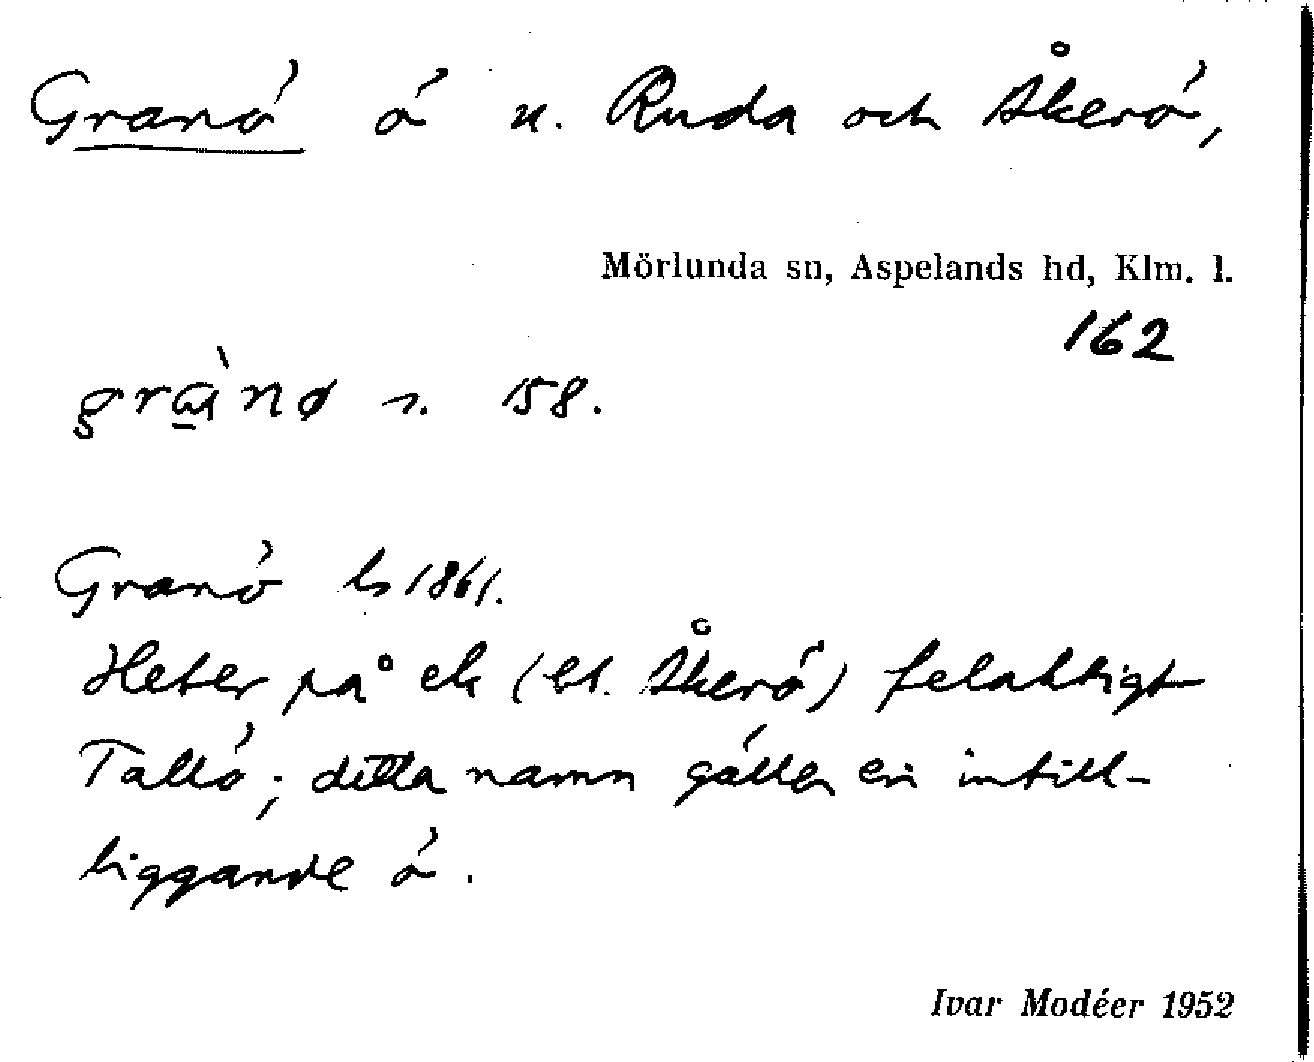 Granö ö u. Ruda och Åkerö,
Mörlunda sn, Aspelands hd, Klm. l.
162
grànø s. 158.
Granö ls 1861.
Heter på ek (bl. Åkerö) felaktigt
Tallö; detta namn gäller en intill-
liggande ö.
Ivar Modéer 1952